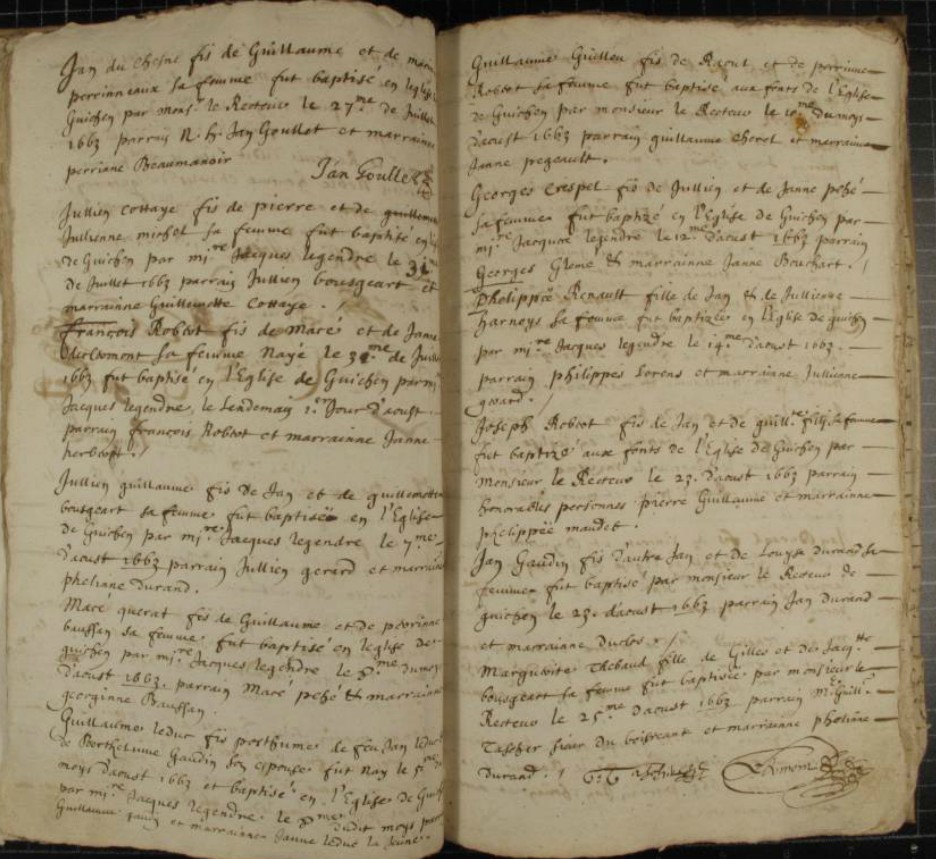 Jan du chesne fis de Guillaume et de
perrinneaux sa femme fut baptisé en leglise
Guichen par mons.r le Recteur le 27.me de Juillet
1663 parrain N. h. Jan Goullet et marrainne
perrinne Beaumanoir
Jan Goullet
Jullien cottaye fis de pierre et de
Jullienne michel sa femme fut baptisé en
de Guichen par mi.re Jacques legendre le 31
de Juillet 1663 parrain Jullien bousgeart et
marrainne Guillemette Cottaye .
François Robtot fis de Macé et de Janne
sa femme Nayé le 31.me de Juillet
1663 fut baptisé en l'Eglise de Guichen par mi
Jacques legendre le Lendemain 1.er Jour d'aoust
parrain françois Robtot et marrainne Janne
Jullien guillaume fis de Jan et de guillemette
bousgeart sa femme fut baptisé en l'Eglise
de Guichen par mi.re Jacques legendre le 7.me
d'aoust 1663 parrain Jullien gerard et marrainne
phelinne durand .
Macé querat fis de Guillaume et de perrinne
baussan sa femme fut baptisé en leglise de
guichen par mi.re Jacques legendre le 8.me du moys
d'aoust 1663 . parrain Macé pehé & marrainne
georginne Baussan
Guillaume leduc fis posthume de feu Jan leduc
de Berthelinne Gaudin son espouse fut Nay le
moys d'aoust 1663 et baptisé en l'Eglise de
par mi.re Jacques legendre le 8.me dudit moys
Guillaume gaudin et marrainne Janne leduc la Jeune .
Guillaume Guillou fis de Raoul et de perrinne
Robtot sa femme fut baptisé aux fonts de l'Eglise
de Guichen par monsieur le Recteur le 10.me du moys
d'aoust 1663 parrain guillaume et marrainne
Janne pegeault .
Georges Crespel fis de Jullien et de Janne pehé
sa femme fut baptizé en l'Eglise de Guichen par
mi.re Jacques legendre le 12.me d'aoust 1663 parrain
Georges & marrainne Janne Bouchart .
Phelippée Renault fille de Jan & de Jullienne
harnoys sa femme fut baptizée en l'Eglise de guichen
par mi.re Jacques legendre le 14.me d'aoust 1663 .
parrain philippes Lorens et marrainne Jullienne
Joseph Robtot fis de Jan et de sa femme
fut baptizé aux fonts de l'Eglise de Guichen par
Monsieur le Recteur le 23. d'aoust 1663 parrain
honorables personnes pierre Guillaume et marrainne
phelippée maudet .
Jan Gaudin fis d'autre Jan et de Louyse durand sa
femme fut baptisé par monsieur le Recteur de
guichen le d'aoust 1663 parrain Jan durand
et marrainne Duclos . /
Marguerite Thebaud fille de Gilles et de Jacq.tte
bousgeart sa femme fut baptisée par monsieur le
Recteur le 25.me d'aoust 1663 parrain M.e Guill.e
Tascher sieur du et marrainne phelinne
durand .